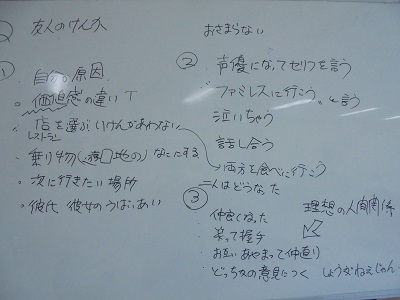 友人のけんか
①
自分の原因
・価値感の違い
・店を選ぶ いけんがあわない
レストラン
・乗り物(遊園地の)なににする
・次に行きたい場所
・彼氏、彼女のうばいあい
おさまらない
② 声優になってセリフを言う
"ファミレスに行こう"と言う
泣いちゃう
話し合う
→両方を食べに行こう
二人はどうなった
③
仲良くなった
・笑って握手
・お互いあやまって仲直り
・どっちかの意見につく しょうがねえじゃん
理想の人間関係